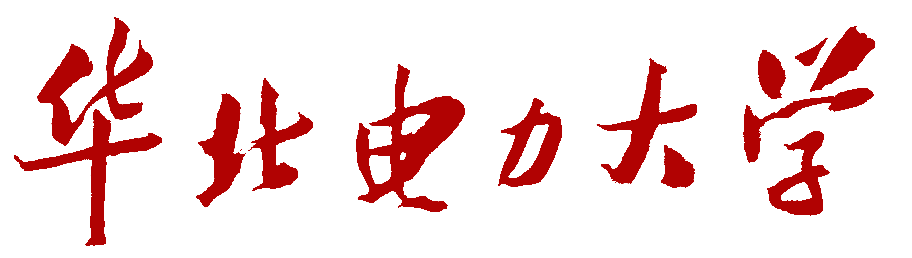 华北电力大学